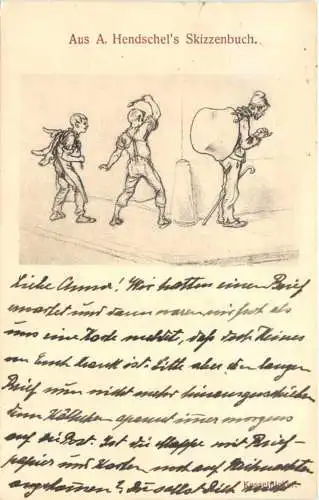 Aus A. Hendschel's Skizzenbuch.
Liebe Anna! Wir hatten einen Brief
erwartet und dann waren wir fast als
uns eine Karte meldet, daß dort Keines
an Euch krank ist. Bitte aber den langen
Brief nun nicht mehr hinausgeschieben
denn immer morgens
auf die Post. Ist die Mappe mit Brief-
papier und Karten noch auf Weihnachten
angekommen? Du sollst Dich